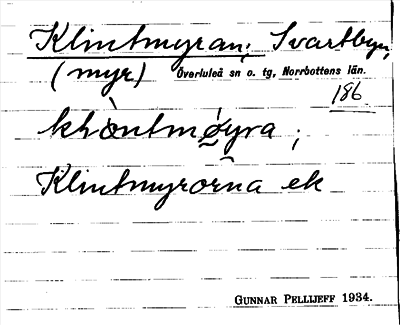 Klintmyran; Svartbyn,
(myr) Överluleå sn o. tg, Norrbottens län.
186
khòntmø̀yra ;
Klintmyrorna ek
GUNNAR PELLIJEFF 1934.